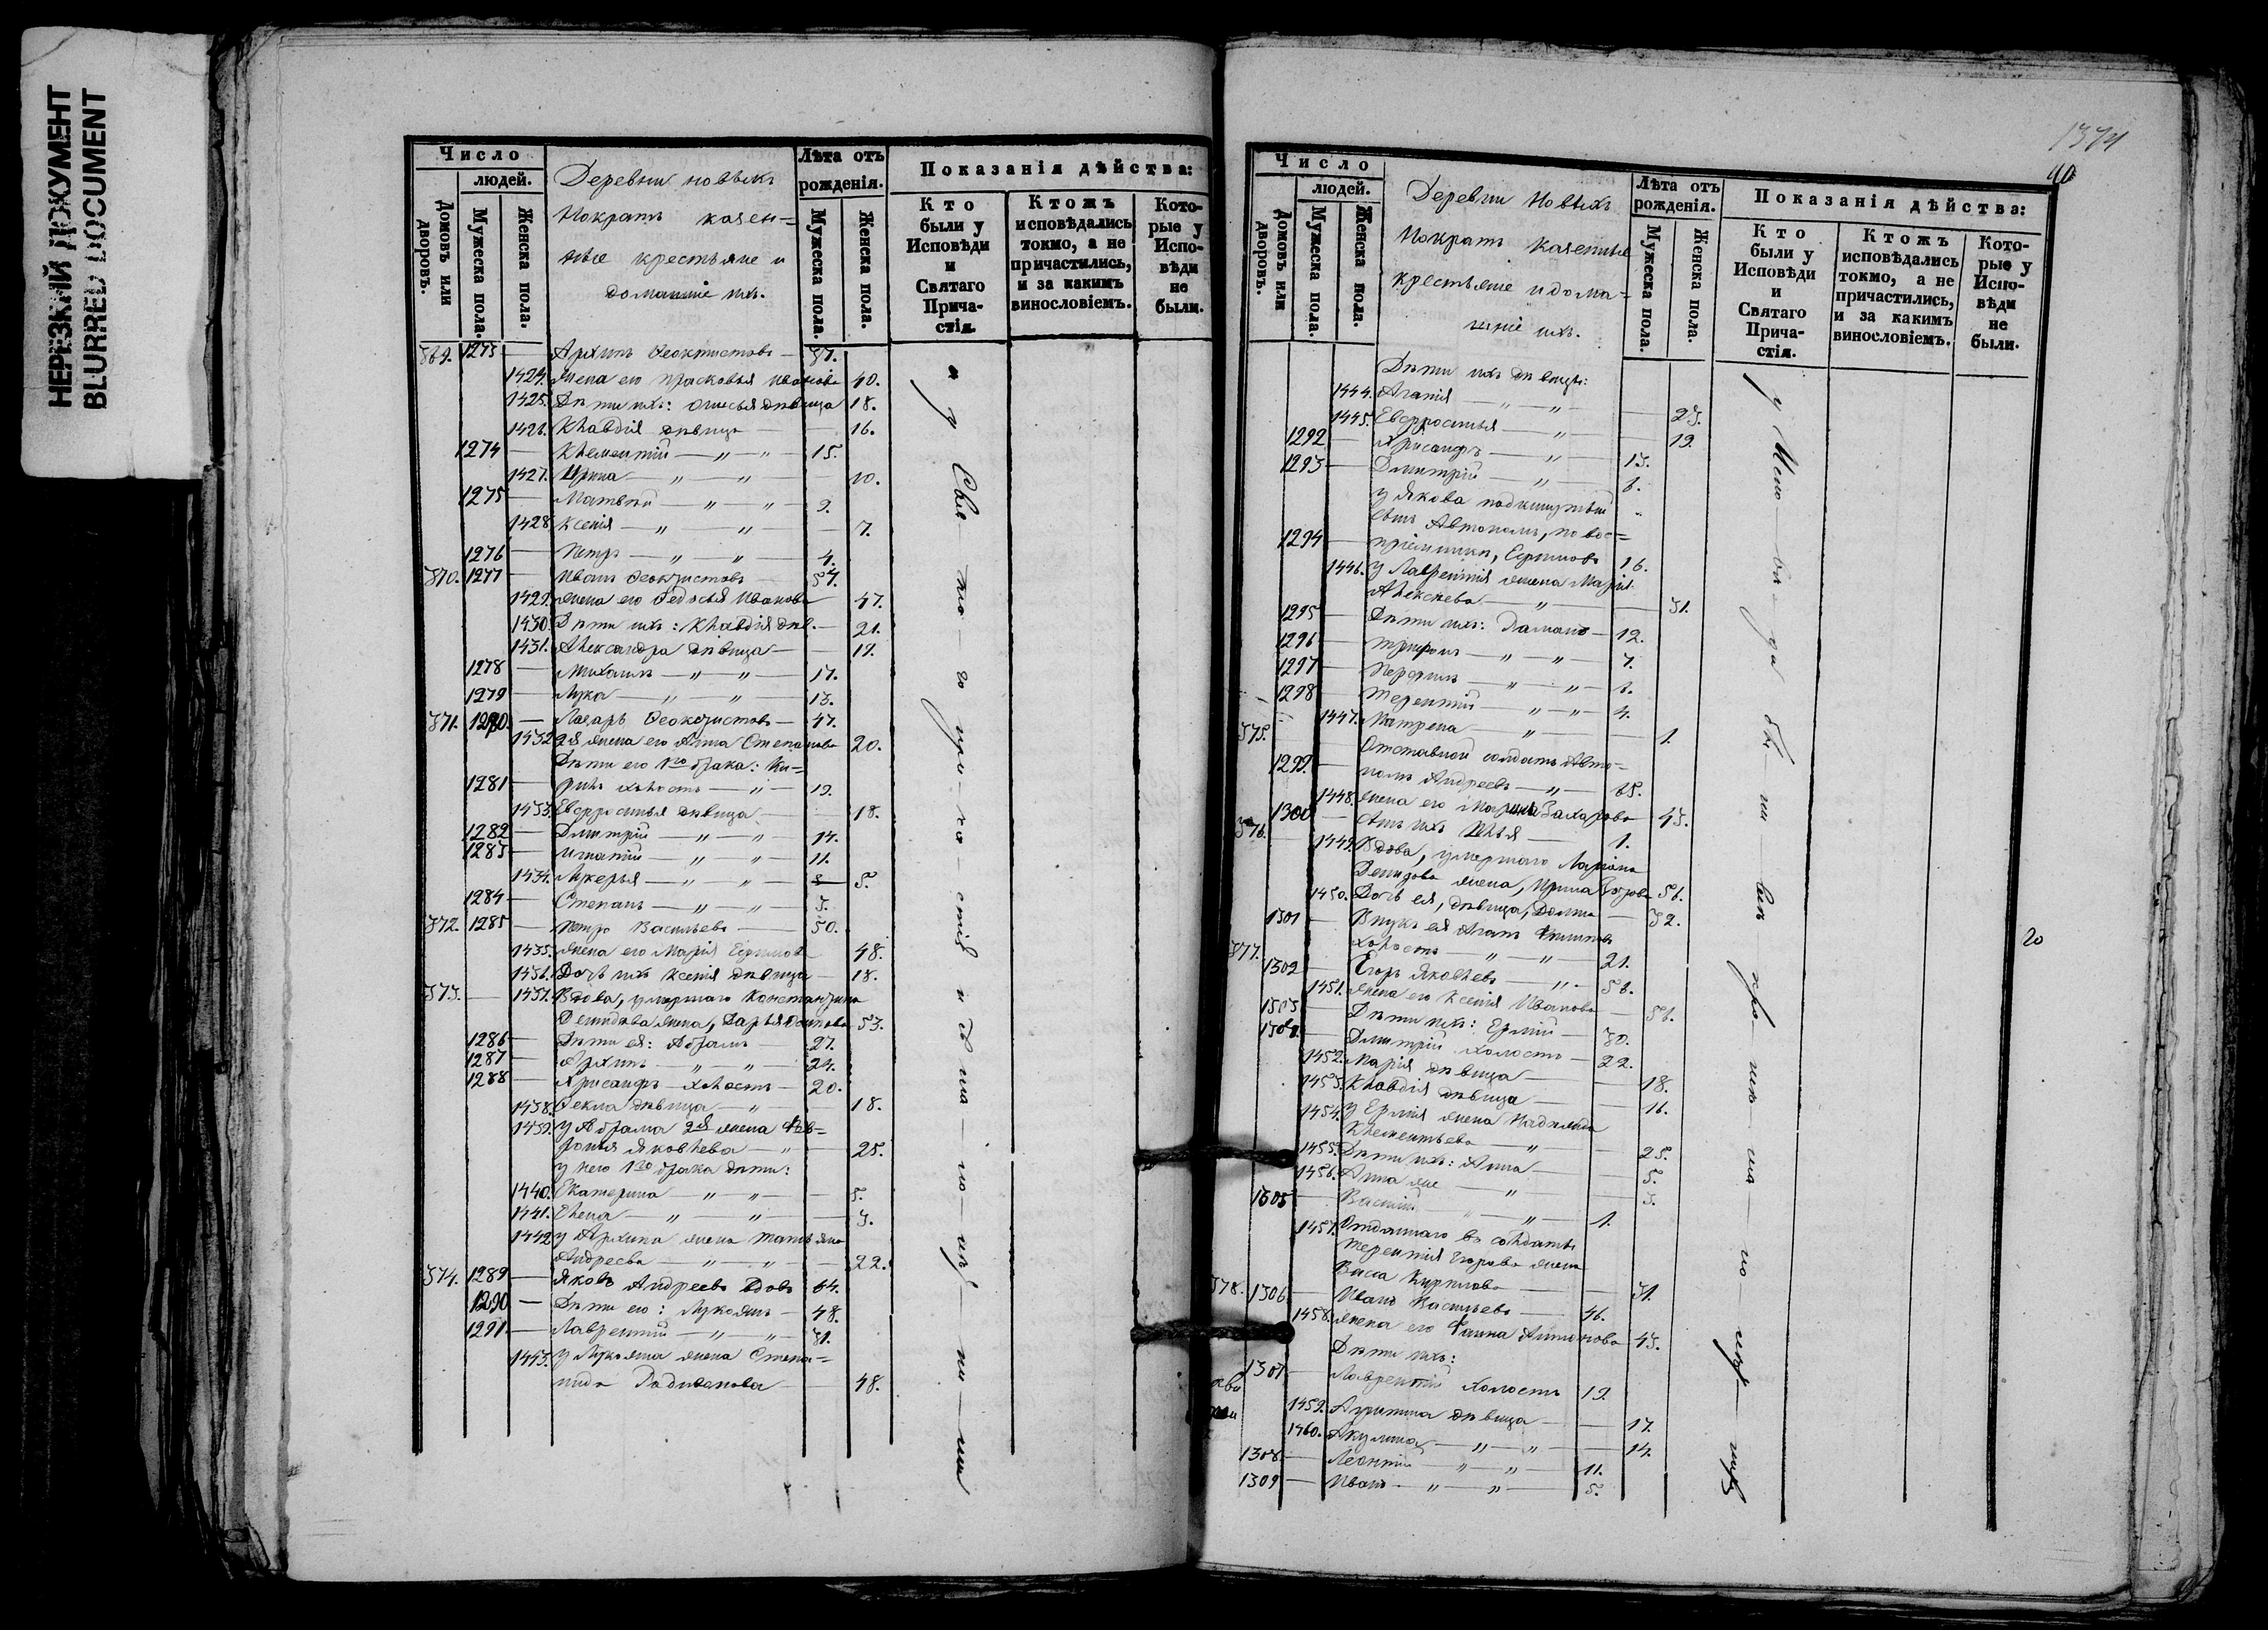 НЕРЕЗКИЙ ДОКУМЕНТ
BLURRED DOCUMENT
Число
людей.
Домовъ или дворовъ.
Мужеска пола.
Женска пола.
Деревни новыхъ
Мократъ казен=
ные крестьяне и
домашніе ихъ.
Лѣта отъ рожденія.
Мужеска пола.
Женска пола.
Показанія дѣйства:
Кто были у Исповѣди и Святаго Прича-стія.
Ктожъ исповѣдались токмо, а не причастились, и за какимъ винословіемъ.
Кото-рые у Испо-вѣди не были.
369. 1273. — Архипъ Феоктистовъ — 37.
1424. Жена его Прасковья Иванова 40.
1425. Дѣти ихъ: дѣвица 18.
1426. Клавдія дѣвица — 16.
1274 — Клементій — „ — „ — 15.
1427. Ирина — „ — „ — 10.
1275 — Матвѣй — „ — „ — 9.
1428 Ксенія — „ — „ — 7.
1276 — Петръ — „ — „ — 4.
370. 1277 — Иванъ Феоктистовъ — 57.
1429. Жена его Федосья Иванова — 47.
1430. Дѣти ихъ: Клавдія дѣв. — 21.
1431. Александра дѣвица — 19.
1278 — Михаилъ — „ — „ — 17.
1279 — Лука — „ — „ — 13.
371. 1280. — Лазарь Феоктистовъ — 47.
1432 2я жена его Анна Степанова 20.
Дѣти его 1го брака: Ки=
1281 — рилъ холостъ — „ — 19.
1433. Евфросинья дѣвица — 18.
1282 — Дмитрій — „ — „ — 14.
1283 — Игнатій — „ — „ — 11.
1434. Лукерья — „ — „ — 5.
1284 — Степанъ — „ — „ — 3.
372. 1285 — Петръ Васильевъ — 50.
1435. Жена его Марія Ефимова 48.
1436. Дочь ихъ Ксенія дѣвица — 18.
373. — 1437. Вдова, умершаго Константина
Демидова жена, Дарья Осипова 53.
1286 — Дѣти ея: Абрамъ — 27.
1287 — Архипъ — „ — „ — 24.
1288 — Хрисанфъ — холостъ — 20.
1438. Фекла дѣвица — „ — 18.
1439. У Абрама 2я жена Фев=
ронья Яковлева — „ — 25.
у него 1го брака дѣти:
1440. Екатерина — „ — „ — 5.
1441. Елена — „ — „ — 3.
1442 У Архипа жена Татьяна
Андреева — „ — „ — 22.
374. 1289 — Яковъ Андреевъ вдовъ 64.
1290 — Дѣти его: Лукоянъ — 48.
1291. — Лаврентій — „ — „ — 31.
1443. У Лукояна жена Степа=
нида Радивонова — 48.
1374
40
Число
людей.
Домовъ или дворовъ.
Мужеска пола.
Женска пола.
Деревни Новыхъ
Мократъ казенные
крестьяне и дома=
шніе ихъ.
Лѣта отъ рожденія.
Мужеска пола.
Женска пола.
Показанія дѣйства:
Кто были у Исповѣди и Святаго Прича-стія.
Ктожъ исповѣдались токмо, а не причастились, и за какимъ винословіемъ.
Кото-рые у Испо-вѣди не были.
Дѣти ихъ дѣвицы:
1444. Агапія — „ — „ — 23.
1445. Евфросинья — „ — 19.
1292 — Хрисанфъ — „ — 13.
1293 — Дмитрій — „ — 6.
У Якова подкинутый
сынъ Автономъ, по вос=
1294 — пріемнику, Ефимовъ 16.
1446. У Лаврентія жена Марія
Алексѣева — „ — 31.
1295 — Дѣти ихъ: Романъ — 12.
1296 — Трифонъ — „ — „ — 7.
1297 — Перфилъ — „ — „ — 6.
1298 — Терентій — „ — „ — 4.
1447. Матрена — „ — 1.
375. Отставной солдатъ Авто=
1299. — номъ Андреевъ — „ — 65.
1448. Жена его Марина Захарова 43.
1300 — Сынъ ихъ Илья — 1.
376. 1449. Вдова, умершаго Ларіона
Демидова жена, Ирина 56.
1450. Дочь ея, дѣвица, Домна — 32.
1301 — Внукъ ея Агапъ Филиповъ
холостъ — „ — „ — 21.
377. 1302 — Егоръ Яковлевъ — „ — 56.
1451. Жена его Ксенія Иванова — 56.
1303 — Дѣти ихъ: Ермій — 30.
1304. — Дмитрій холостъ — 22.
1452. Марія дѣвица — 18.
1453. Клавдія дѣвица — 16.
1454. У Ермія жена Надежда
Клементьева — „ — 25.
1455. Дѣти ихъ: Анна — 5.
1456. Анна же — „ — 3.
1305 — Василій — „ — „ — 1.
1457. Отданнаго въ солдаты
Терентія Егорова жена
Васса Кирилова — 31.
378. 1306 — Иванъ Васильевъ — 46.
1458. Жена его Фаина Антонова 43.
Дѣти ихъ:
1307 — Лаврентій холостъ 19.
1459. Агрипина дѣвица — 17.
1460. Акулина — „ — „ — 14.
1308 — Леонтій — „ — „ — 11.
1309 — Иванъ — „ — „ — 5.
20